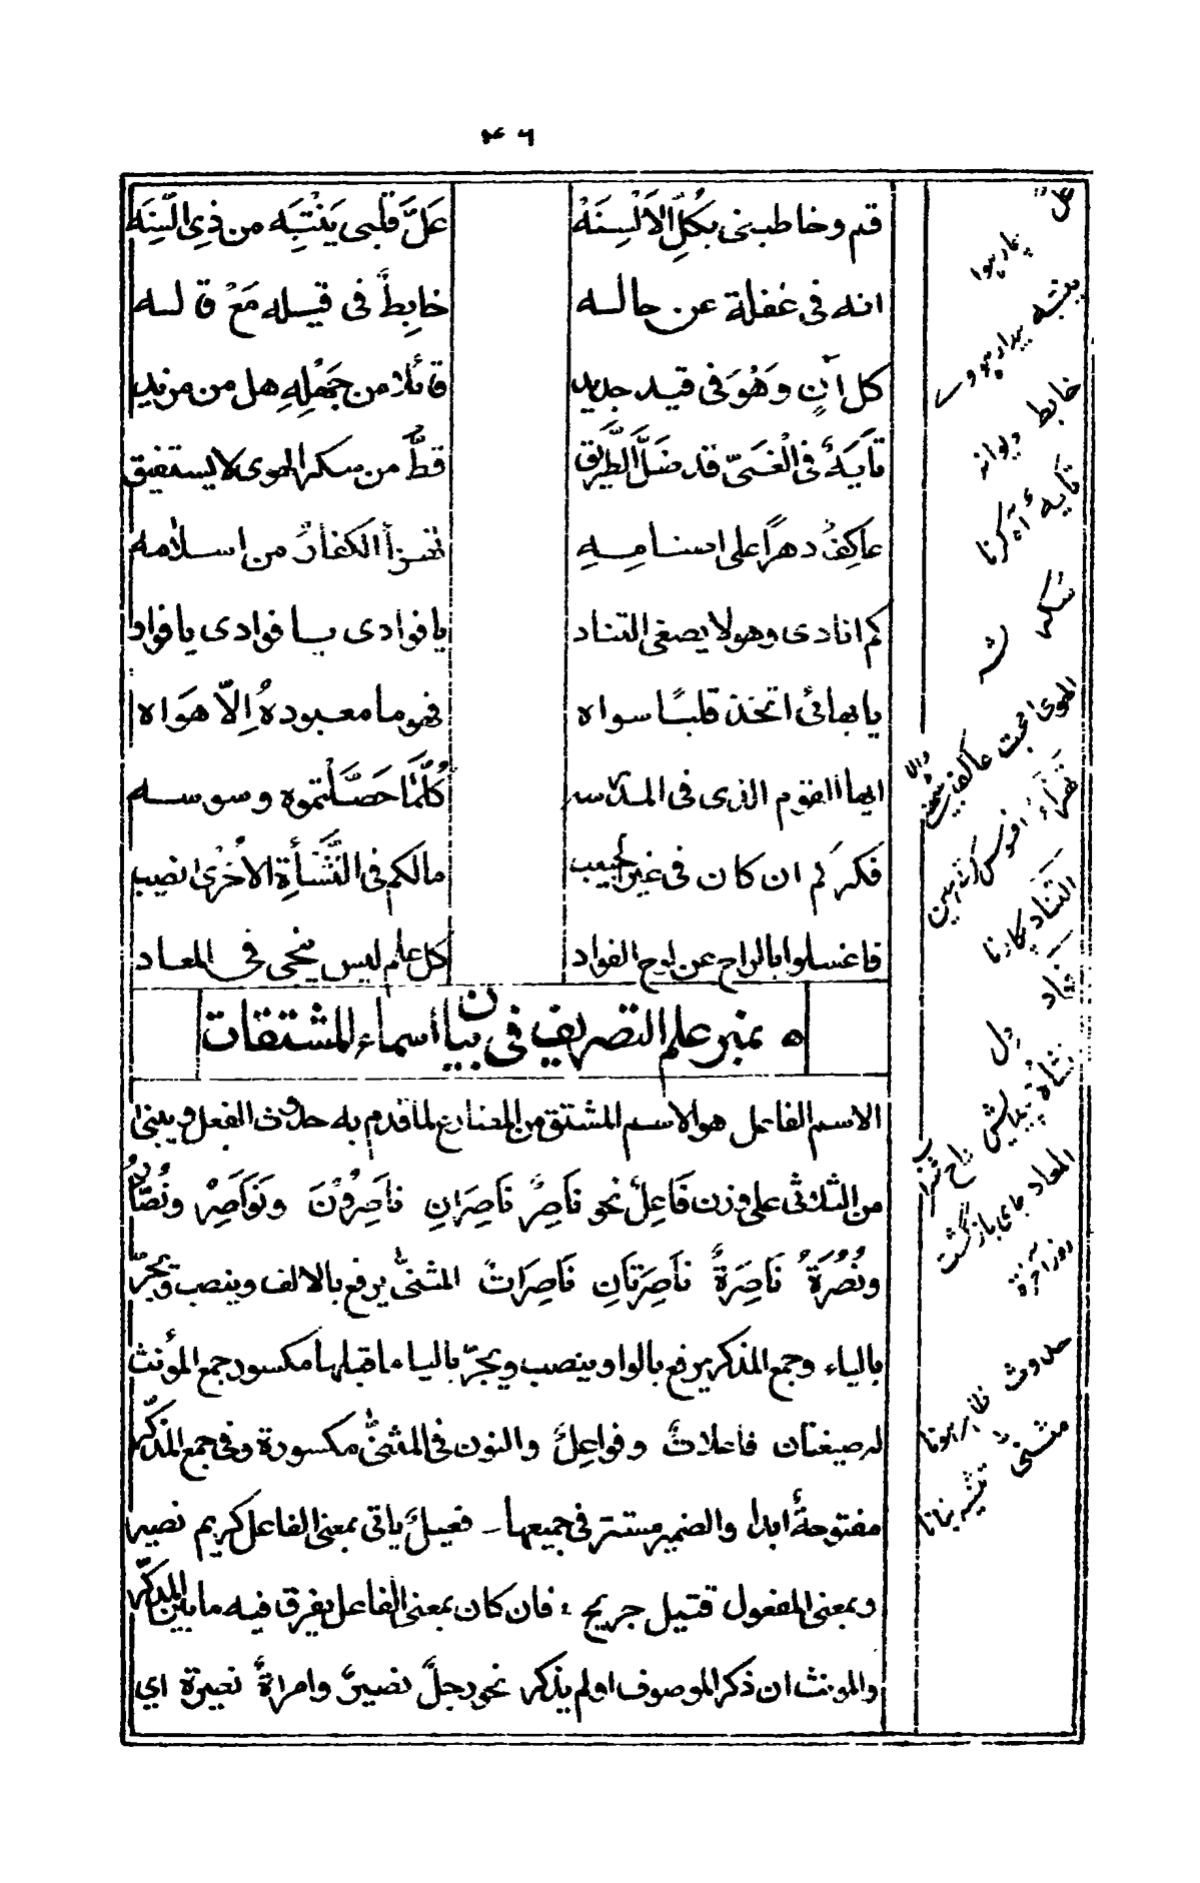 ۴۶
قم وخاطبنی بکُلِّ الاَلْسِنَهْ عَلَّ قَلْبی یَنْتَبِه من ذِی السِّنَه
انه فی غفلة عن حاله خابِطٌ فی قیله مَعْ قاله
کل آنٍ وَهُوَ فی قید جدید قائلا من جَهْلِهِ هل من مزید
تایَهٌ فی الْغَیّ قد ضَلَّ الطَّریق قطُّ من سکر الهوی لا یستفیق
عاکِفٌ دهراً علی اصنامِهِ تهزأ الکفارُ من اسلامه
کم انادی وهو لا یصغی التناد یا فوادی یا فوادی یا فواد
یا بهائی اتخذ قلبًا سواه فهو ما معبودهُ اِلاّ هَواه
ایها القوم الذی فی المدرسه کُلَّمَا حَصَّلْتموه وسوسه
فکرکم ان کان فی غیر الحبیب مالکم فی النَّشْأَةِ الاُخْری نصیب
فاغسلوا بالراح عن لوح الفواد کل علم لیس ینجی فی المعاد
۵ نمبر علم التصریف فی بیان أسماء المشتقات
الاسم الفاعل هو الاسم المشتق من المضارع لما قدم به حدوث الفعل ویبنی
من الثلاثی علی وزن فَاعِلٌ نحو نَاصِرٌ نَاصِرَانِ نَاصِرُوْنَ ونَوَاصِرْ ونُصَّارٌ
ونُصُرَةٌ نَاصِرَةٌ نَاصِرَتَانِ نَاصِرَاتٌ المثنیّٰ یرفع بالالف وینصب ویجرّ
بالیاء وجمع المذکر یرفع بالواو وینصب ویجرّ بالیاء ماقبلها مکسور جمع المؤنث
له صیغتان فاعلاتٌ وفواعِلٌ والنون فی المثنیّٰ مکسورة وفی جمع المذکّر
مفتوحةٌ ابدا والضمیر مستتر فی جمیعها ـ فعیلٌ یاتی بمعنی الفاعل کریم نصیر
وبمعنی المفعول قتیل جریح ؛ فان کان بمعنی الفاعل یفرق فیه مابین المذکّر
والمونث ان ذکر الموصوف او لم یذکر نحو رجلٌ نصیرٌ وامراةٌ نصیرة ای
علّ
ینتبه بیدار ہووے
خابط دیوانه
سکر
الهوی
التناد پکارنا
فواد دل
نشاة پیدایش
راح شراب
المعاد جای بازگشت
روز آخرت
حدوث ظاہر ہونا
مثنیّ تثنیہ بنانا